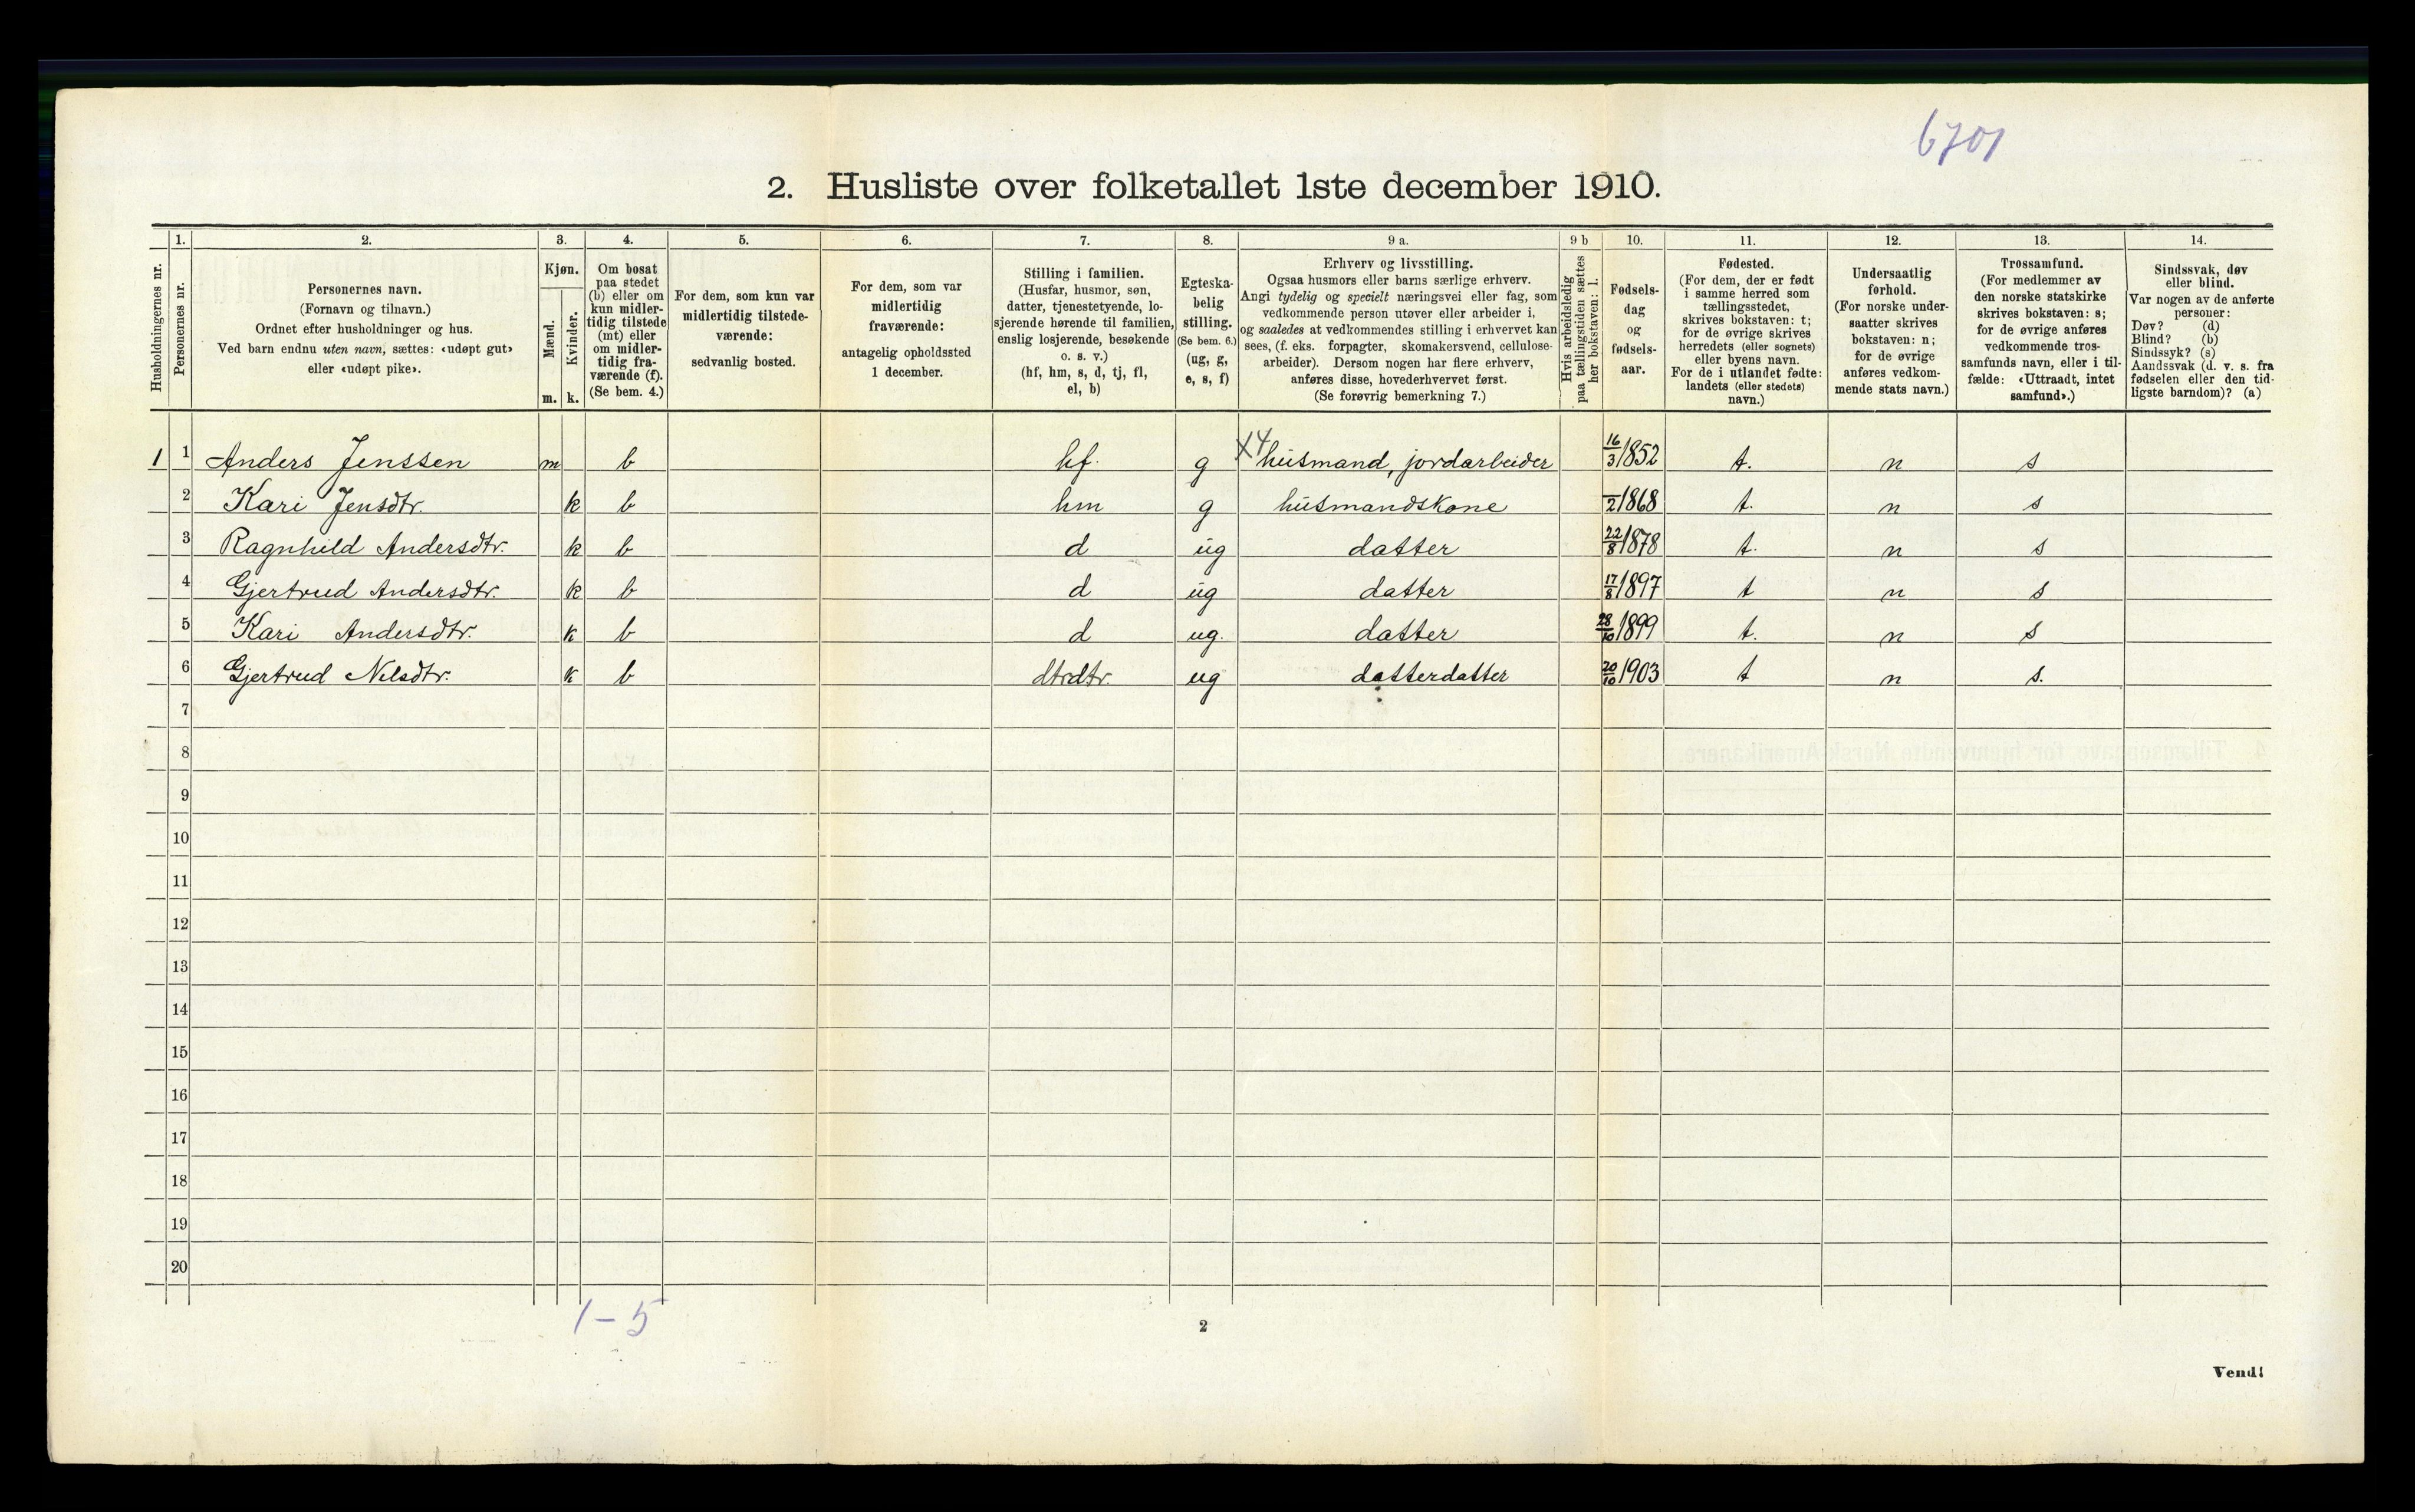 6701
2. Husliste over folketallet 1ste december 1910.
Husholdningernes nr.
1.
Personernes nr.
2.
Personernes navn.
(Fornavn og tilnavn.)
Ordnet efter husholdninger og hus.
Ved barn endnu uten navn, sættes: «udøpt gut»
eller «udøpt pike».
3.
Kjøn.
Mænd.
Kvinder.
m. k.
4.
Om bosat
paa stedet
(b) eller om
kun midler-
tidig tilstede
(mt) eller
om midler-
tidig fra-
værende (f).
(Se bem. 4.)
5.
For dem, som kun var
midlertidig tilstede-
værende:
sedvanlig bosted.
6.
For dem, som var
midlertidig
fraværende:
antagelig opholdssted
1 december.
7.
Stilling i familien.
(Husfar, husmor, søn,
datter, tjenestetyende, lo-
sjerende hørende til familien,
enslig losjerende, besøkende
o. s. v.)
(hf, hm, s, d, tj, fl,
el, b)
8.
Egteska-
belig
stilling.
(Se bem. 6.)
(ug, g,
e, s, f)
9 a.
Erhverv og livsstilling.
Ogsaa husmors eller barns særlige erhverv.
Angi tydelig og specielt næringsvei eller fag, som
vedkommende person utøver eller arbeider i,
og saaledes at vedkommendes stilling i erhvervet kan
sees, (f. eks. forpagter, skomakersvend, cellulose-
arbeider). Dersom nogen har flere erhverv,
anføres disse, hovederhvervet først.
(Se forøvrig bemerkning 7.)
9 b
Hvis arbeidsledig
paa tællingstiden sættes
her bokstaven: l.
10.
Fødsels-
dag
og
fødsels-
aar.
11.
Fødested.
(For dem, der er født
i samme herred som
tællingsstedet,
skrives bokstaven: t;
for de øvrige skrives
herredets (eller sognets)
eller byens navn.
For de i utlandet fødte:
landets (eller stedets)
navn.)
12.
Undersaatlig
forhold.
(For norske under-
saatter skrives
bokstaven: n;
for de øvrige
anføres vedkom-
mende stats navn.)
13.
Trossamfund.
(For medlemmer av
den norske statskirke
skrives bokstaven: s;
for de øvrige anføres
vedkommende tros-
samfunds navn, eller i til-
fælde: «Uttraadt, intet
samfund».)
14.
Sindssvak, døv
eller blind.
Var nogen av de anførte
personer:
Døv? (d)
Blind? (b)
Sindssyk? (s)
Aandssvak (d. v. s. fra
fødselen eller den tid-
ligste barndom)? (a)
1 1 Anders Jenssen m b hf. g X4 husmand, jordarbeider 16/3 1852 t. n s
2 Kari Jensdtr. k b hm g husmandskone /2 1868 t. n s
3 Ragnhild Andersdtr. k b d ug datter 22/8 1878 t. n s
4 Gjertrud Andersdtr. k b d ug datter 17/8 1897 t n s
5 Kari Andersdtr. k b d ug. datter 28/10 1899 t. n s
6 Gjertrud Nilsdtr. k b dtrdtr. ug datterdatter 20/10 1903 t n s.
7
8
9
10
11
12
13
14
15
16
17
18
19
20
1-5
2
Vend!